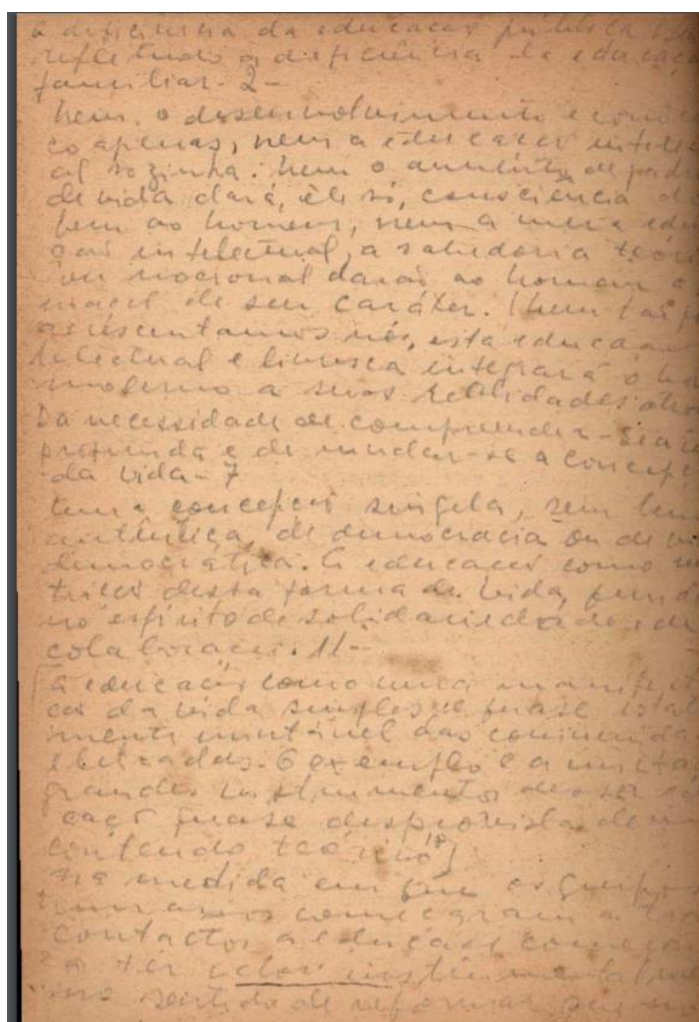 a deficiencia da educação pública
refletindo a deficiência da educaçã
familiar - 2 -
Nem o desenvolvimento econômi
co apenas, nem a educação intelec
al sozinha. Nem o aumento de pad
de vida dará, êle só, consciência d
bem ao homem, nem a mera edu
ção intelectual, a sabedoria teór
ou nocional dará ao homem a
de seu caráter. Nem tão p
acrescentamos nós, esta educaçã
telectual e livresca integrará o ho
moderno a suas realidades
Da necessidade de compreender-se a
profunda e de mudar-se a concepç
da vida - 7
Uma concepção singela, sem
autêntica, de democracia ou de vi
democrática. A educação como
desta forma de vida, fund
no espírito de solidariedade e de
colaboração. 11 -
[a educação como uma manifest
ção da vida simples e quase
das comunida
O exemplo e a imita
grandes instrumentos dessa
cação quase desprovida de
conteúdo teórico]
Na medida em que os grupos
humanos começaram a
contactos a educação começa
a ter instrumental
no sentido de reformar